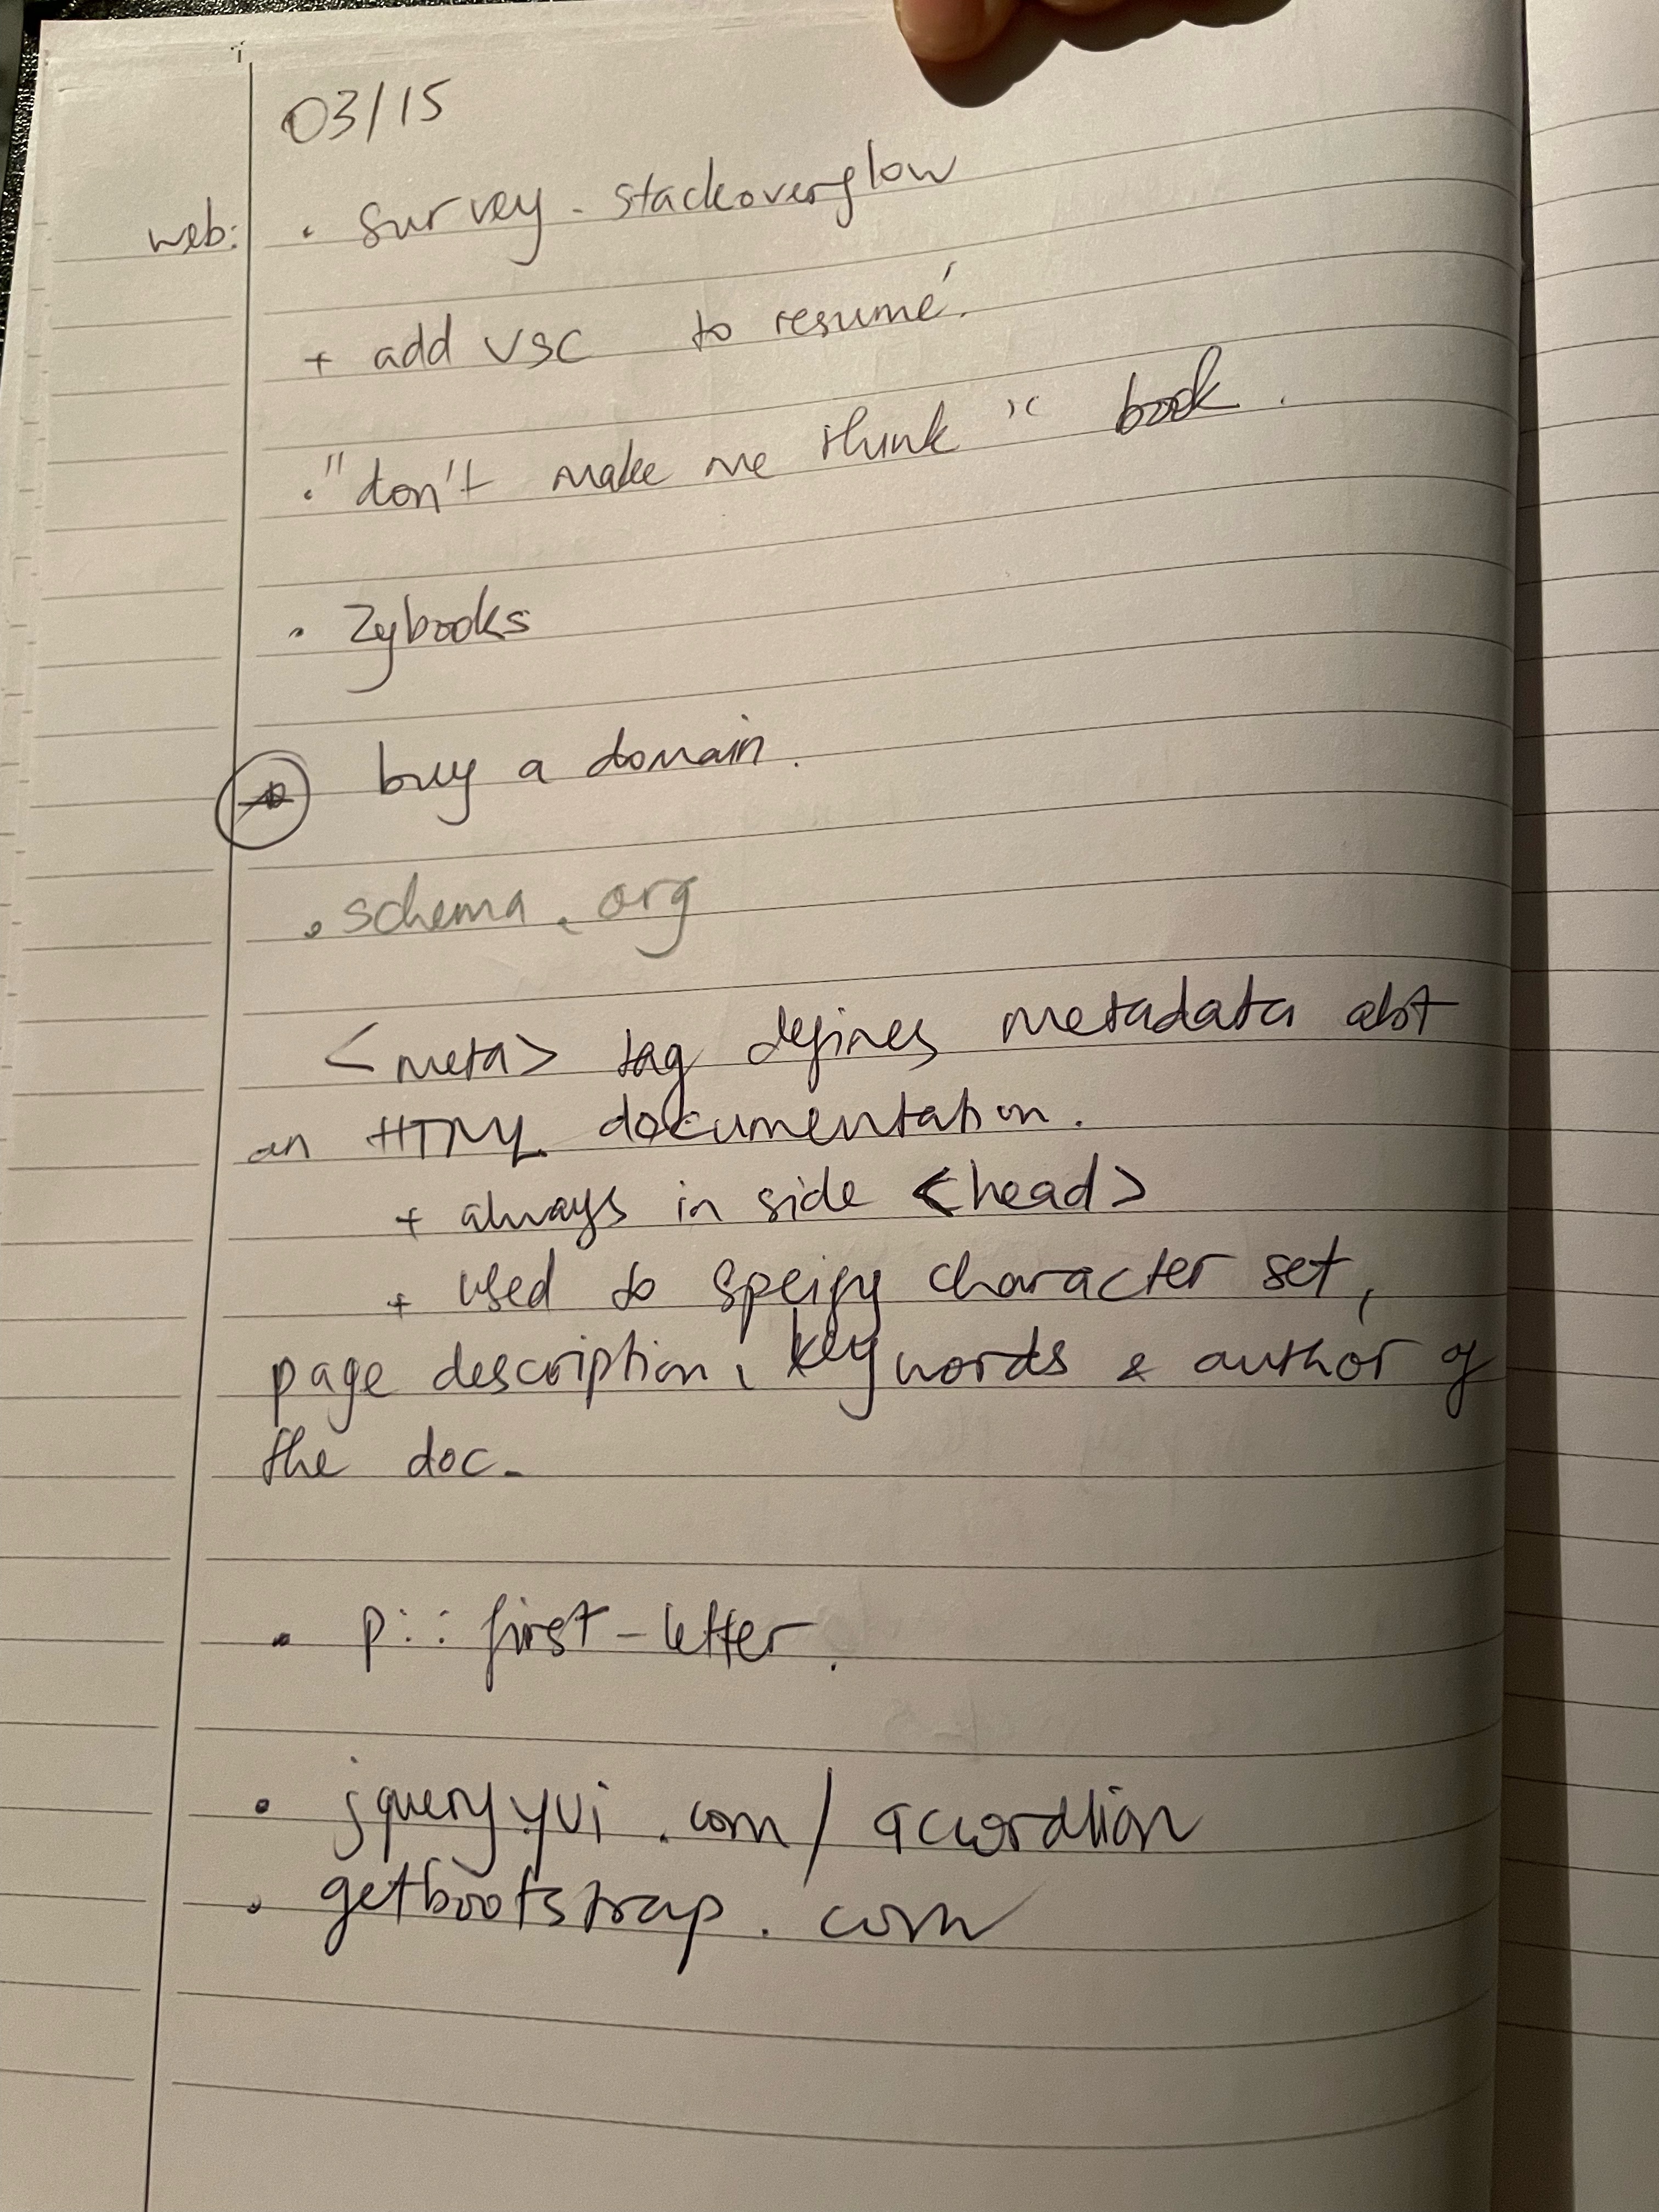 03/15
web: • survey. stackoverflow
+ add VSC to resumé.
• "don't make me think" book.
• Zybooks
buy a domain.
• schema.org
<meta> tag defines metadata abt
an HTML documentation.
+ always in side <head>
+ used to speify character set,
page description, key words & author of
the doc.
• p::first-letter.
• jqueryyui.com/accordion
• getbootstrap.com